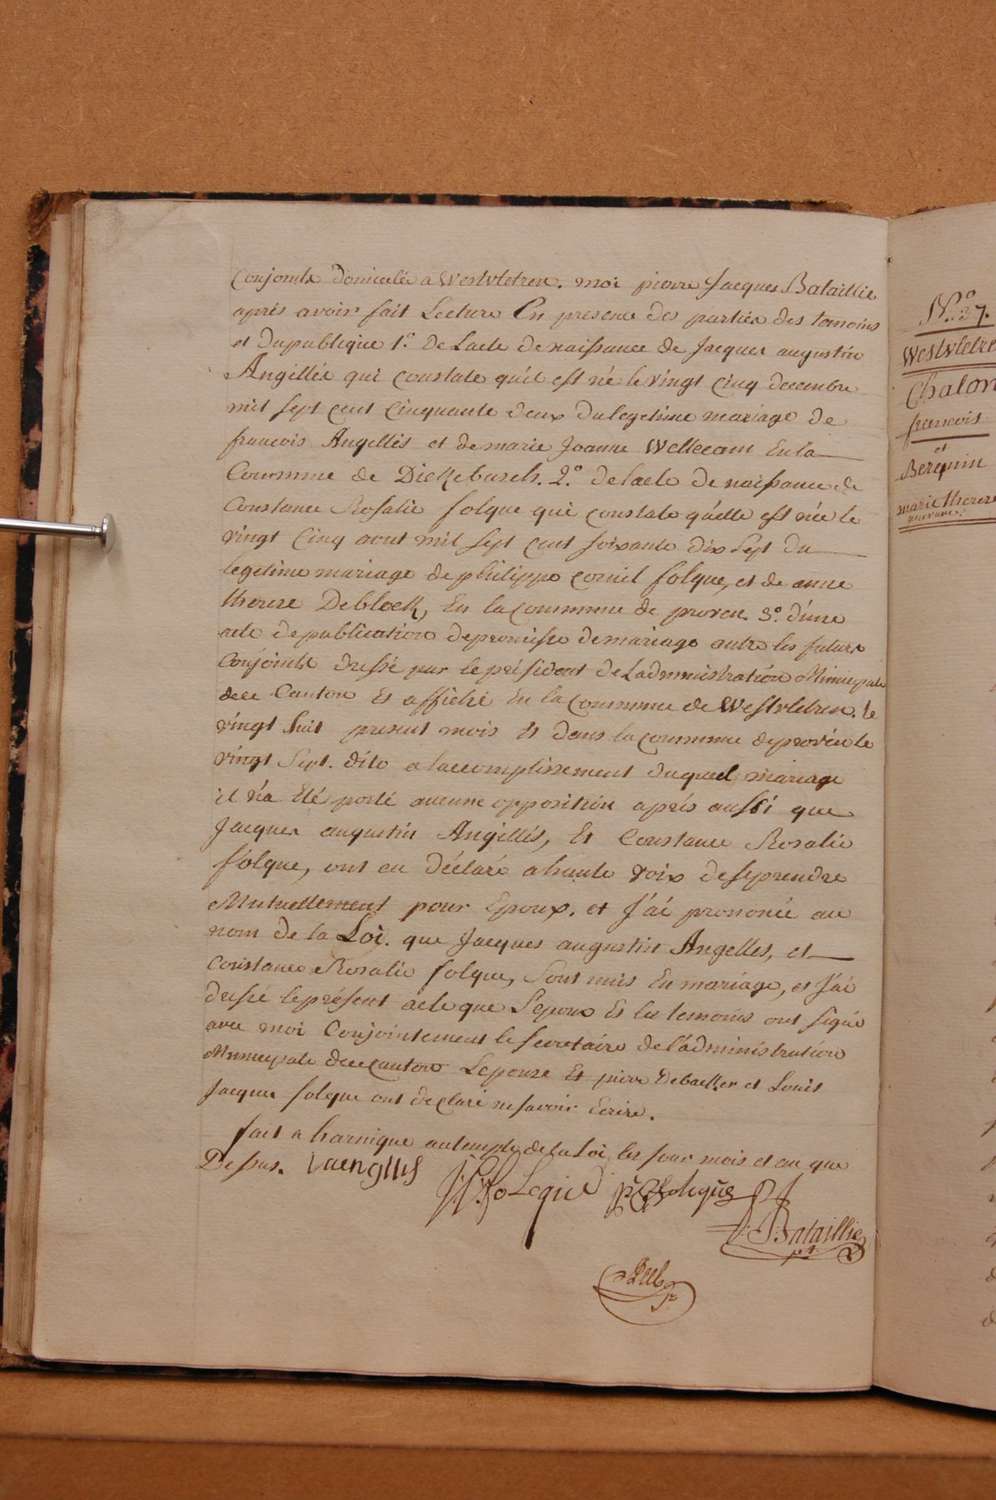 Conjoints domiciliés a Westvletren. moi pierre Jacques Bataillie
après avoir fait Lecture En presence des parties des temoins
et du publique 1.° de Lacte de naissance de Jacques augustin
Angillis qui constate qu'il est né le vingt cinq decembre
mil sept cent cinquante deux du legetime mariage de
francois Angellis et de marie Joanne Wellecam En la
Commune de Dickebusch. 2.° de lacte de naissance de
Constance Rosalie folque qui constate qu'elle est née le
vingt Cinq aout mil sept cent soixante dix sept du
legetime mariage de philippe corneil folque, et de anne
therese Deblock, En la commune de proven. 3.° d'une
acte de publication de promesse de mariage entre les futurs
Conjoints dressé par le président de Ladministration Municipale
de ce Canton Et affiché En la Commune de Westvletren. le
vingt huit present mois Et dans la commune de provén le
vingt Sept. dito a laccomplissement duquel mariage
il n'a Eté porté aucune opposition après aussi que
Jacques augustin Angillis, Et Constance Rosalie
folque, ont eu déclaré a haute voix de se prendre
Mutuellement pour Epoux. et J'ai prononcé au
nom de la Loi. que Jacques augustin Angelles, et
Constance Rosalie folque, Sont unis En mariage, et J'ai
dressé le présent acte que Lepoux Et les temoins ont signé
avec moi Conjointement le secretaire de l'administration
Municipale de ce canton Lepouse Et pierre Debacker et Louis
Jacques folque ont declaré ne savoir Ecrire.
fait a haringue au temple de la Loi, les jour mois et an que
Dessus.
Bataillie
N.° 27.
Westvletre
Chalon
francois
et
Berquin
marie therese